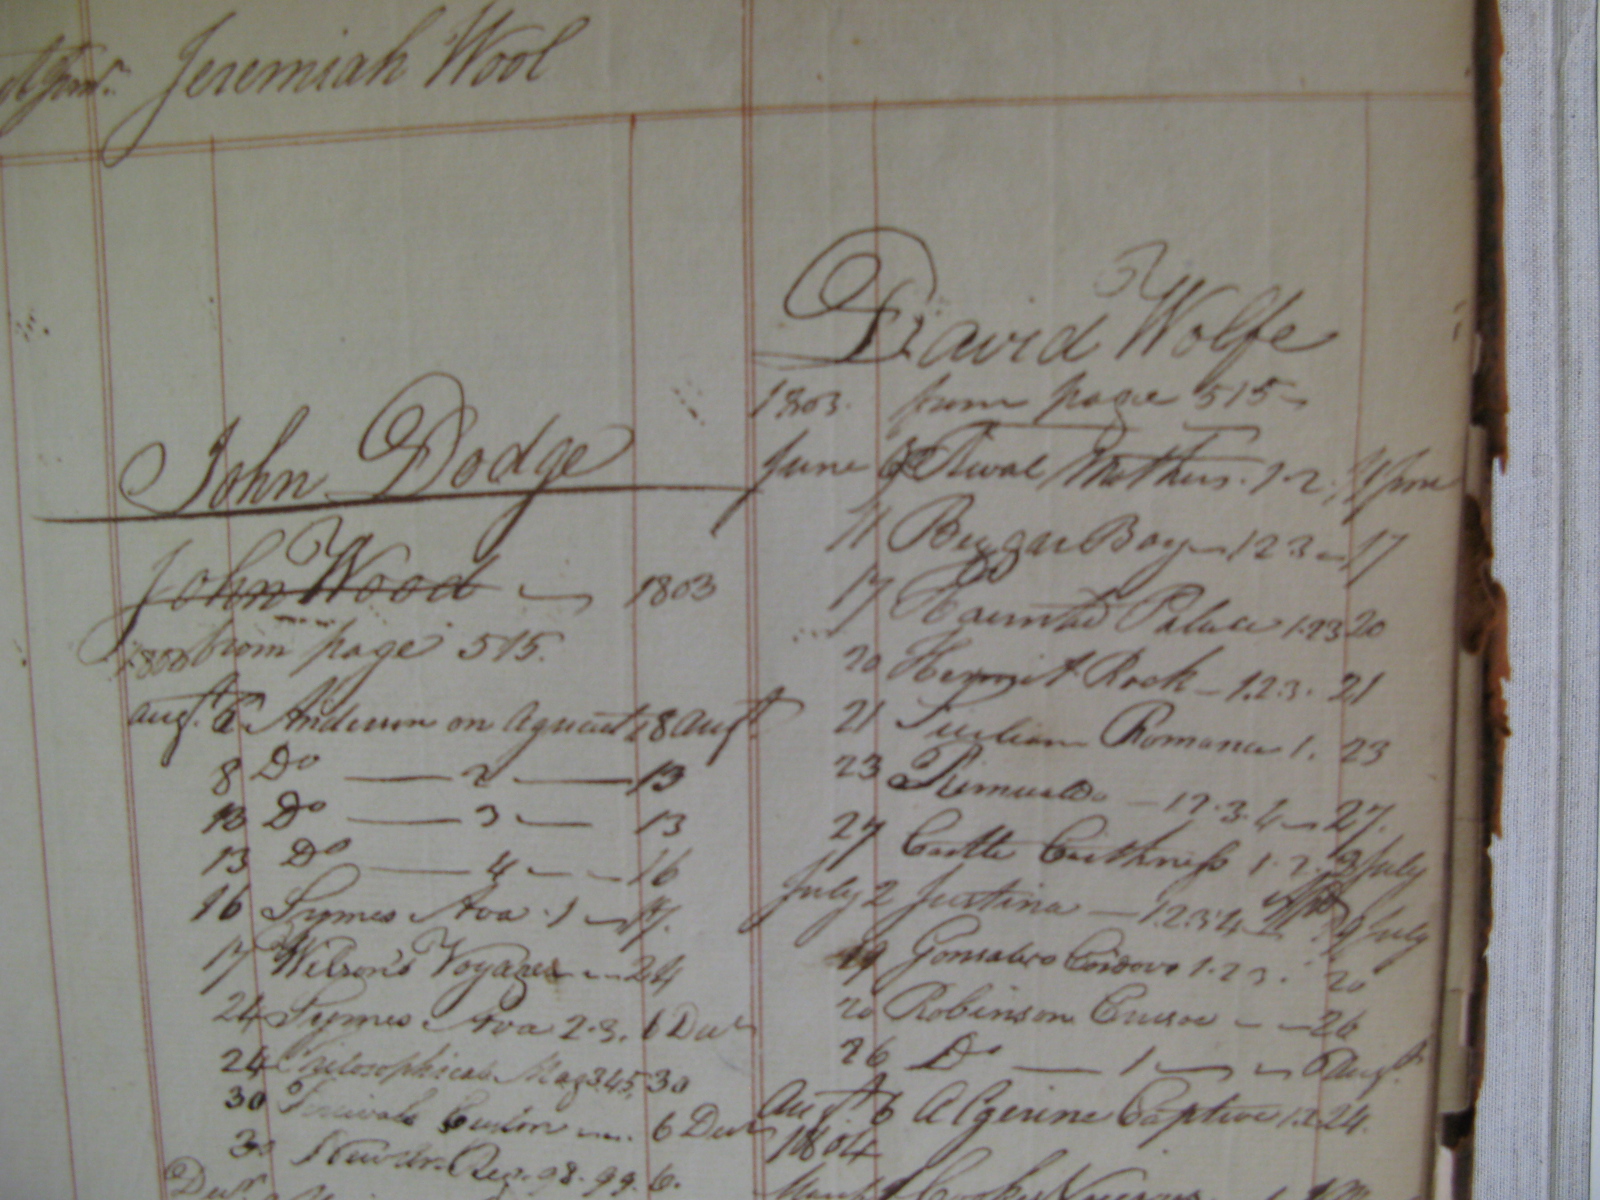 Jeremiah Wool
John Dodge
John Wood 1803
from page 515.
Augt. 6 Anderson on 1 8 Augt
8 Do 2 13
13 Do 3 13
13 Do 4 16
16 Symes Ava 1 17.
17 Wilson's Voyages 24
24 Symes Ava 2.3. 6 Decr
24 Philosophical Mag 3.4.5. 30
30 6 Decr
30 Reg. 98. 99. 6.
Decr
David Wolfe
1803. from page 515
June Rival Mothers. 1.2. 11 June
11 Beggar Boy 1 2 3 17
17 Haunted Palace 1.2 3 20
20 Hermit Rock 1.2.3. 21
21 Sicilian Romance 1. 23
23 Rimualdo 1 2. 3. 4 27.
27 Castle Caithness 1. 2. 2 July
July 2 Justina 1.2.3.4 9 July
19 Gonsalvo Cordova 1.2 3. 20
20 Robinson Crusoe 26
26 Do 1 6 Augt.
Augt 6 Algerine Captive 1.2. 24.
1804